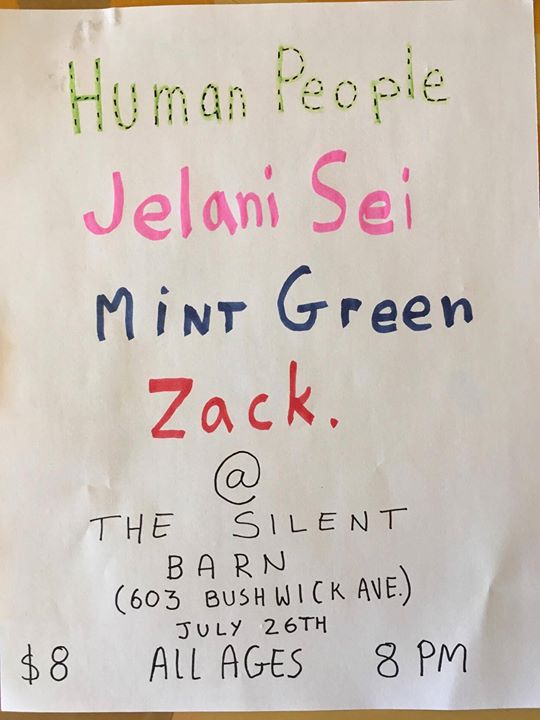 Human People
Jelani Sei
MINT Green
Zack.
@
THE SILENT
BARN
(603 BUSHWICK AVE.)
JULY 26TH
$8 ALL AGES 8 PM